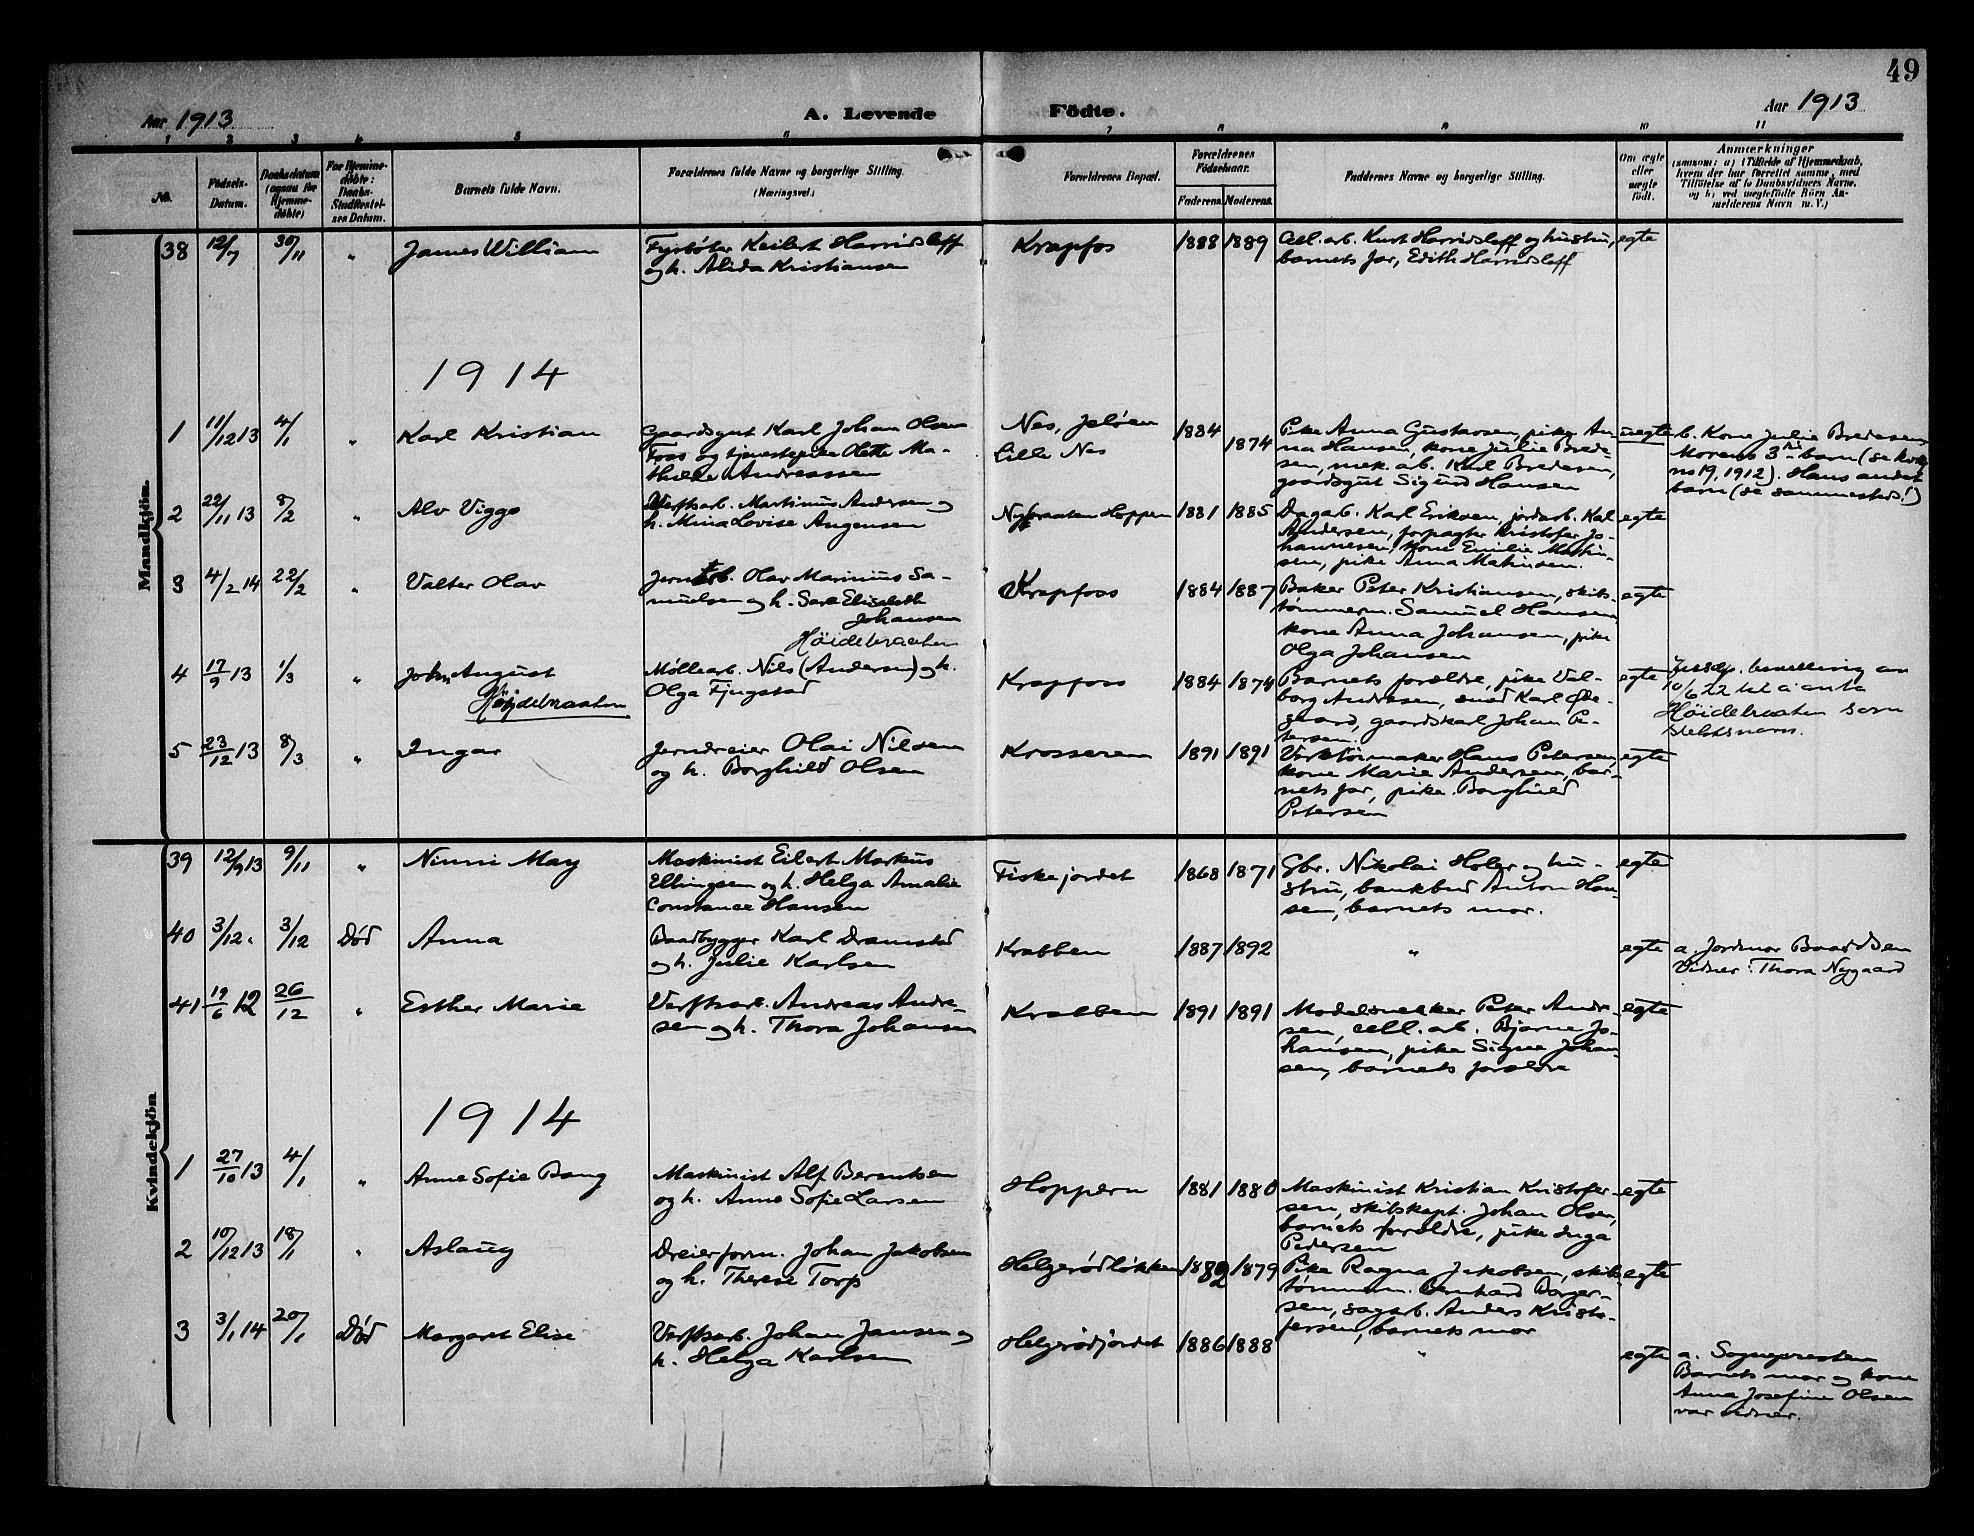 49
Aar 1913
A. Levende
Födte.
Aar 1913
1 2 3 4 5 6 7 8 9 10 11
No.
Födsels-
Datum.
Daabsdatum
(ogsaa for
Hjemme-
döbte)
For Hjemme-
döbte:
Daabs-
Stadfæstel-
ses Datum.
Barnets fulde Navn.
Forældrenes fulde Navne og borgerlige Stilling.
(Næringsvei.)
Forældrenes Bopæl.
Forældrenes
Födselsaar.
Faderens
Moderens
Faddernes Navne og borgerlige Stilling.
Om ægte
eller
uægte
födt.
Anmærkninger
(saasom: a) i Tilfælde af Hjemmedaab,
hvem der har forrettet samme, med
Tilföielse af to Daabsvidners Navne,
og b) ved uægtefödte Börn An-
melderens Navn m. V.)
Mandkjön.
38 12/7 30/11 " James William
Fyrbøter Keilert Harridsleff
og h. Alida Kristiansen
Krapfos 1888 1889
Cell. arb. Kurt Harridsleff og hustru,
barnets far, Edith Harridsleff
egte
1914
1 11/12 13 4/1 " Karl Kristian
Gaardsgut Karl Johan Olsen
Foss og tjenestepike Olette Ma-
thilde Andreassen
Nes, Jeløen
Lille Nes
1884 1874
Pike Anna Gustavsen, pike An-
na Hansen, kone Julie Brede-
sen, mek. arb. Karl Bredesen,
gaardsgut Sigurd Hansen
uegte
b. Kone Julie Bredesen
Morens 3die barn (se
no 19, 1912). Hans andet
barn (se sammesteds!)
2 22/11 13 8/2 " Alv Viggo
Verftsarb. Martinus Andersen og
h. Mina Lovise Angensen
Nybraaten Hoppern 1881 1885
Dagarb. Karl Eriksen, jordarb. Kal
Andersen, forpagter Kristofer Jo-
hannesen, kone Emilie Martin-
sen, pike Anna Matinsen.
egte
3 4/2 14 22/2 " Valter Olav
Jernarb. Olav Marinius Sa-
muelsen og h. Sara Elisabeth
Johansen
Krapfoss 1884 1887
Baker Peter Kristiansen, skibs-
tømmerm. Samuel Hansen
kone Anna Johansen, pike
Olga Johansen
egte
4 17/9 13 1/3 " John August
Høidebraaten
Høidebraaten
Møllearb. Nils (Andersen) og h.
Olga Fjugstad
Krapfoss 1884 1874
Barnets forældre, pike Val-
borg Andresen, smed Karl Øde-
gaard, gaardskarl Johan Pe-
tersen.
egte
Jussdp. bevilling av
10/6 22 til å anta
Høidebraaten som
slektsnavn.
5 23/12 13 8/3 " Ingar
Jerndreier Olai Nilsen
og h. Borghild Olsen
Krosseren 1891 1891
Verktøimaker Hans Petersen,
kone Marie Andersen, bar-
nets far, pike Borghild
Petersen
egte
Kvindekjön
39 12/9 13 9/11 " Ninni May
Maskinist Eilert Markus
Ellingsen og h. Helga Amalie
Constance Hansen
Fiskejordet 1868 1871
Gbr. Nikolai Holer og hu-
stru, bankbud Anton Han-
sen, barnets mor.
egte
40 3/12 " 3/12 Død Anna
Baadbygger Karl Dramstad
og h. Julie Karlsen
Krabben 1887 1892
"
egte
a. Jordmor Baardsen
Vidner: Thora Nygaard
41 19/6 12 26/12 " Esther Marie
Verftsarb. Andreas Andre-
sen og h. Thora Johansen
Krabben 1891 1891
Modelsnekker Peter Andre-
sen, cell. arb. Bjarne Jo-
hansen, pike Signe Johan-
sen, barnets forældre
egte
1914
1 27/10 13 4/1 " Anne Sofie Bang
Maskinist Alf Berentsen
og h. Anne Sofie Larsen
Hoppern 1881 1880
Maskinist Kristian Kristofer-
sen, skibskapt. Johan Olsen,
barnets forældre, pike Inga
Pedersen
egte
2 10/12 13 18/1 " Aslaug
Dreierform. Johan Jakobsen
og h. Therese Torp
Helgerødløkken 1882 1879
Pike Ragna Jakobsen, skibs-
tømmerm. Bernhard Borger-
sen, sagarb. Anders Kristo-
fersen, barnets mor
egte
3 3/1 14 20/1 Død Margaret Elise
Verftsarb. Johan Jansen og
h. Helga Karlsen
Helgerødjordet 1886 1888
"
egte
a. Sognepresten
Barnets mor og kone
Anna Josefine Olsen
var vidner.